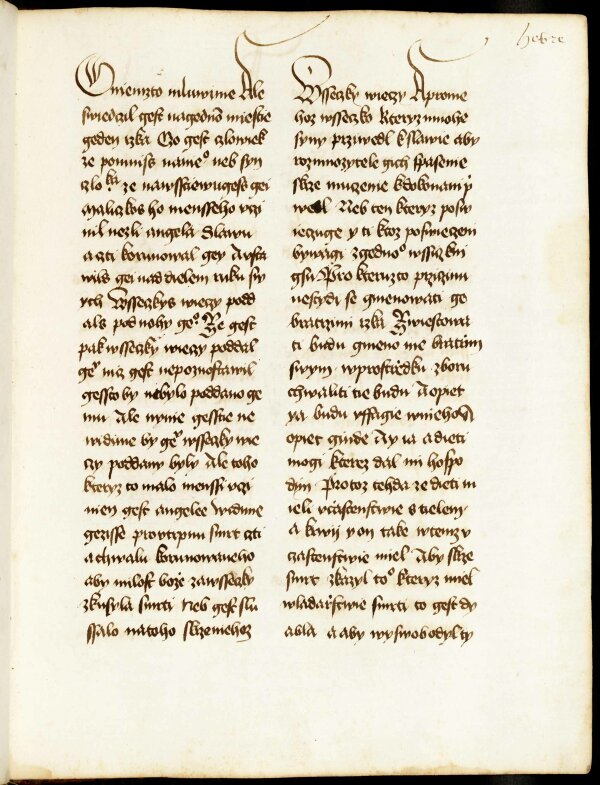 hebre
O nemzto mluwime Ale
swiedczil gest nagednom miestie
geden rzka Czo gest czlowiek
ze pomnis nameo neb syn
czlo ka ze nawsstiewugess gei
Maliczkos ho mensseho vczi
nil nezli angela Slawu
a czti korunowal gey A vsta
wils gei nad dielem ruku sw
ych Wsseczkys wieczy podd
als pod nohy geo Ze gest
pak wsseczky wieczy poddal
geo nicz gest nepozuostawil
gessto by nebylo poddano ge
mu Ale nynie gesstie ne
widime by geo wsseczky wie
czy poddany byly Ale toho
kteryz to malo menssi vczi
nien gest angelee widime
gezisse pro vtrpeni smrt czti
a chwalu korunowaneho
aby milost boze za wsseczky
zkusyla smrti Neb gest slu
ssalo na toho skrze niehoz
Wsseczky wieczy A prome
hoz wsseczko kteryz mnohe
syny prziwedl k slawie aby
rozmnozytele gich spasenie
skrze muczenie k dokonani p
wedl Neb ten kteryz poswi
eczuge y ti ktoz poswieczeni
bywagi z gednoo wssiczkni
gsu Pro kteruzto prziczini
nestydi se gmenowati ge
bratrzimi rzka Zwiestowa
ti budu gmeno me bratrzim
swym w prostrziedku zboru
chwaliti tie budu A opiet
ya budu vffagie w nieho A
opiet ginde Ay ia a dieti
mogi kterez dal mi hospo
dyn Protoz tehda ze dieti m
ieli vczastenstwie s tielem
a krwij y on take w temz v
czastenstwie miel Aby skrze
smrt zkazyl too kteryz miel
wladarzstwie smrti to gest dy
abla a aby wyswobodyl ty